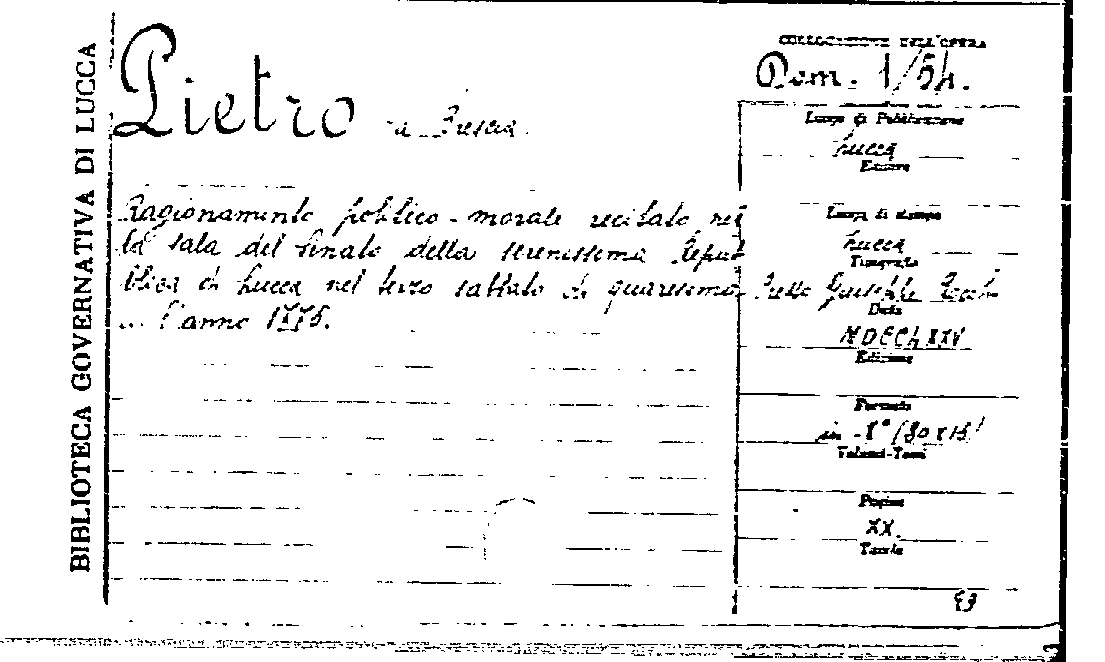 BIBLIOTECA GOVERNATIVA DI LUCCA
Pietro da Brescia
Ragionamento politico-morale recitato nel
la sala del Senato della serenissima Repub
blica di Lucca nel terzo sabbato di quaresima
l'anno 1775.
COLLOCAZIONE DELL'OPERA
Dom. 1/54.
Luogo di Pubblicazione
Lucca
Editore
Luogo di stampa
Lucca
Tipografia
Presso Giuseppe Rocchi
Data
MDCCLXXV
Edizione
Formato
in-8° (30x13)
Volumi-Tomi
Pagine
XX.
Tavole